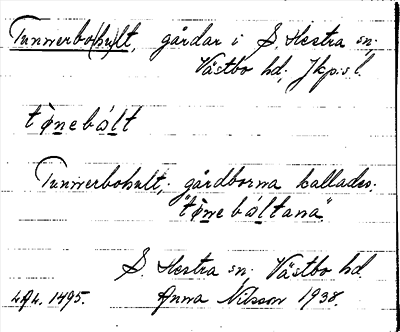 Tunnerbo(hu)lt, gårdar i S. Hestra sn;
Västbo hd; Jkp:s l.
tọ̀nebált
Tunnerbohult; gårdborna kallades:
"tọ̀nebáltana".
S. Hestra sn. Västbo hd.
1495. Anna Nilsson 1938.